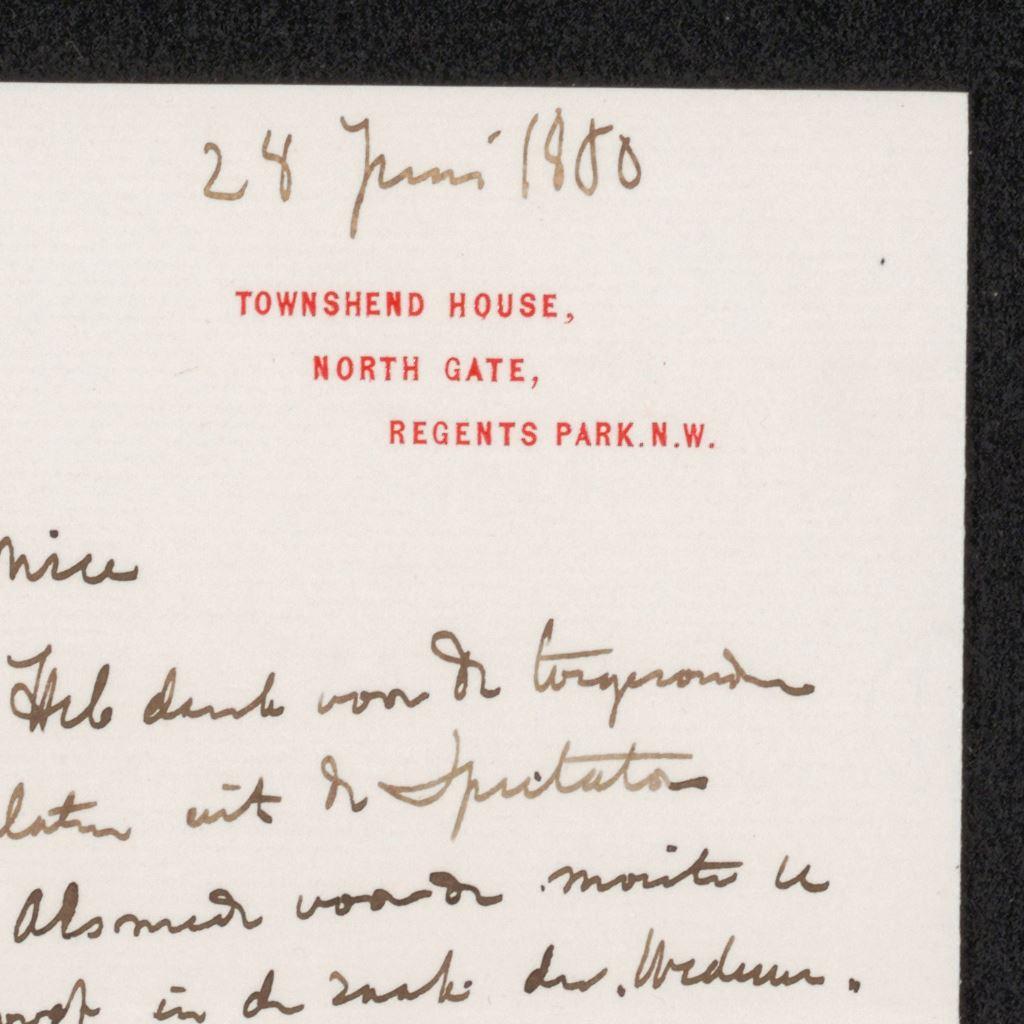 28 Juni 1880
TOWNSHEND HOUSE,
NORTH GATE,
REGENTS PARK.N.W.
mice
Heb dank voor de toegezonden
platen uit de Spectator
Alsmede voor de moeite u
in de zaak der Weduwe.